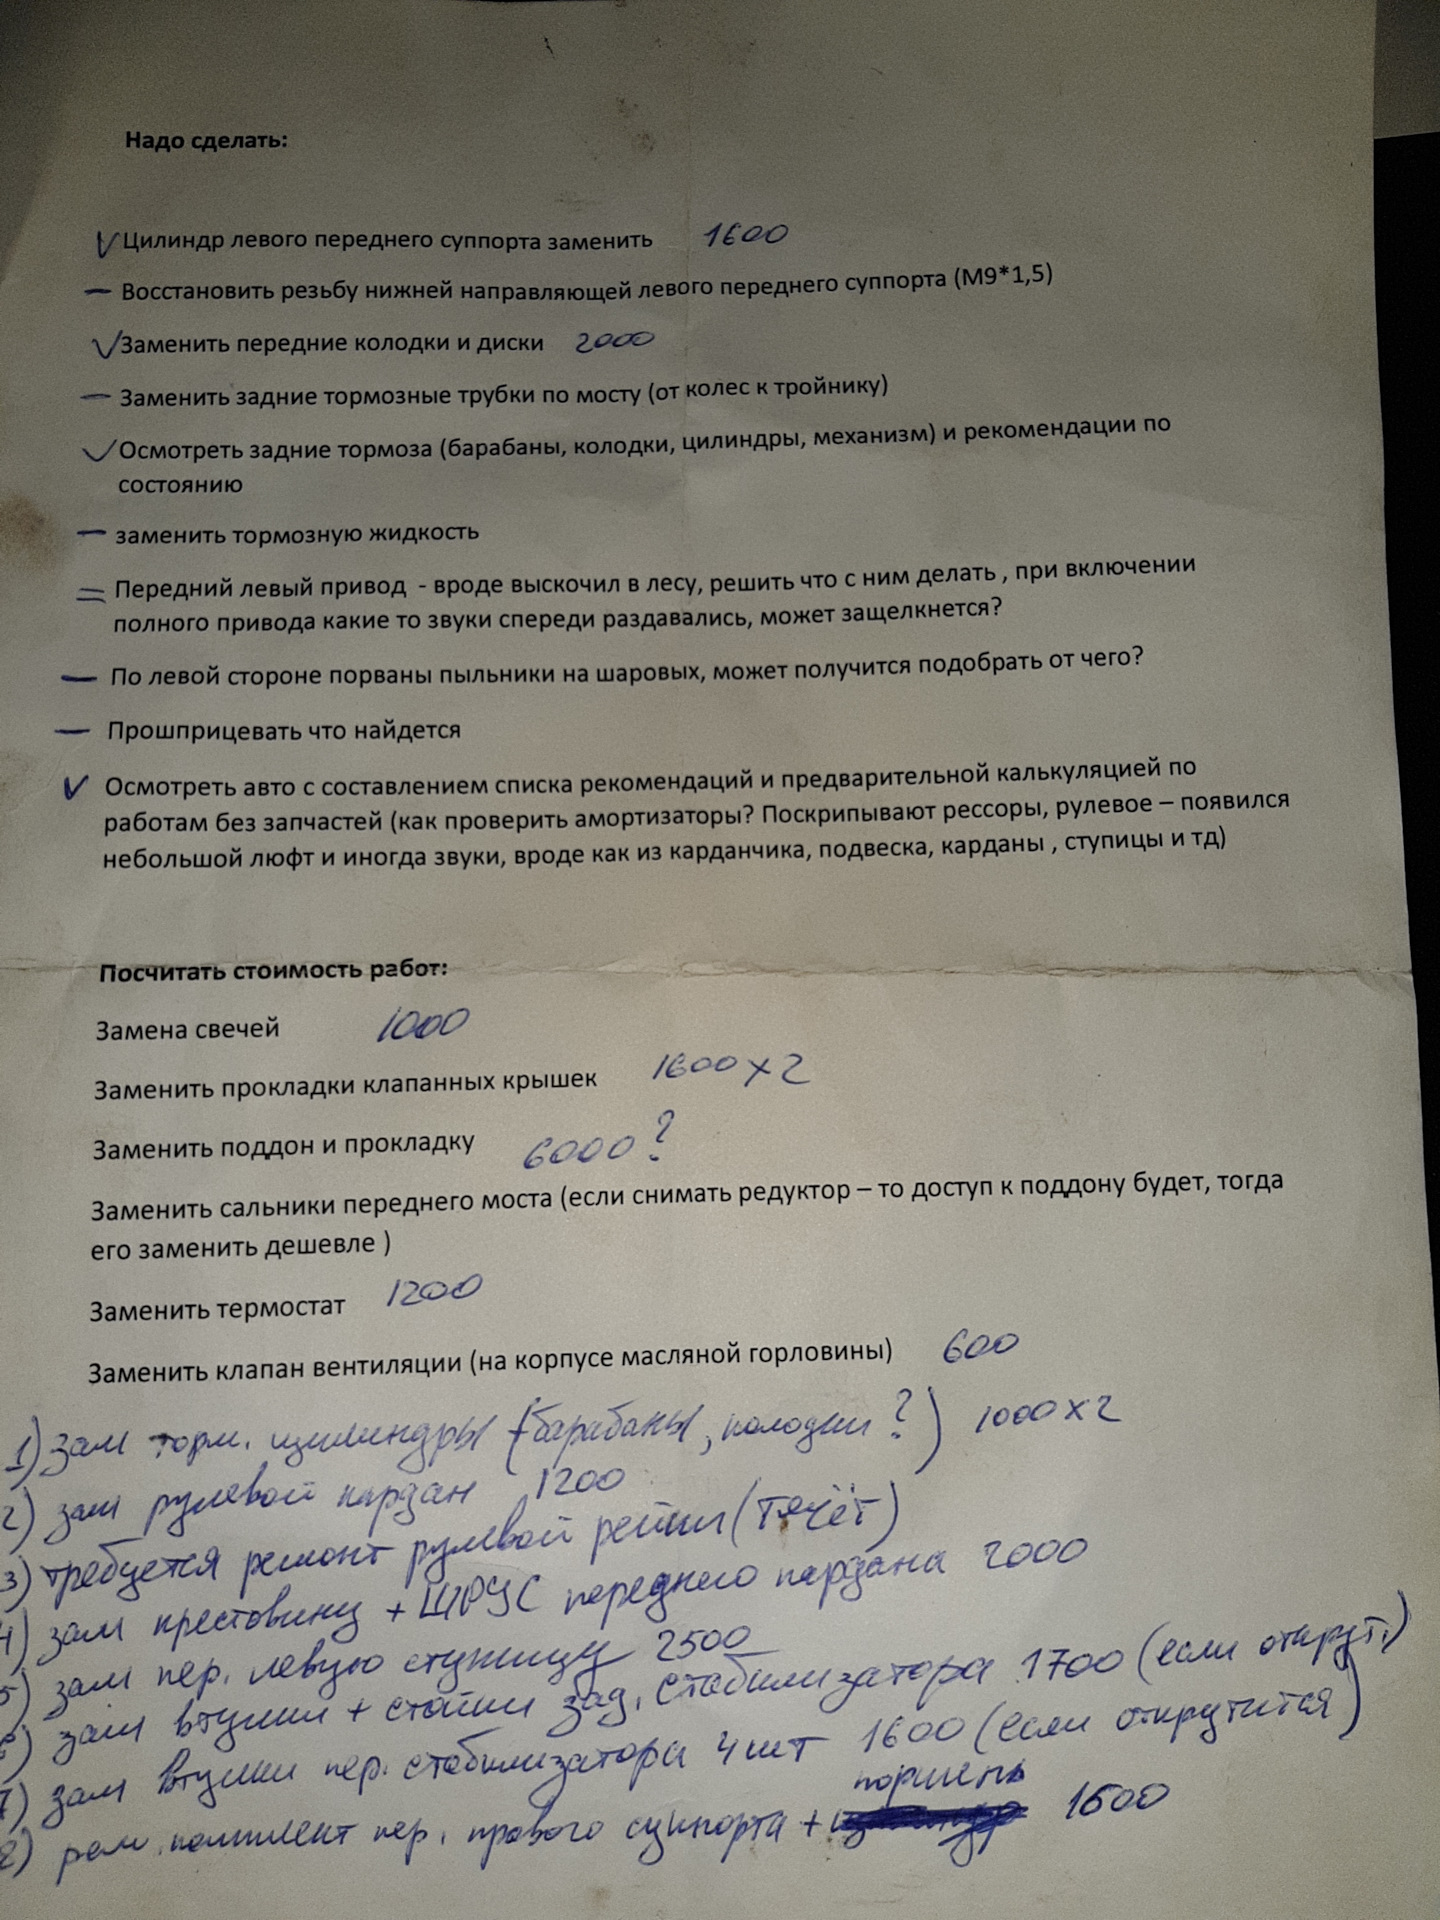 Надо сделать:
V Цилиндр левого переднего суппорта заменить 1600
— Восстановить резьбу нижней направляющей левого переднего суппорта (М9*1,5)
V Заменить передние колодки и диски 2000
— Заменить задние тормозные трубки по мосту (от колес к тройнику)
V Осмотреть задние тормоза (барабаны, колодки, цилиндры, механизм) и рекомендации по
состоянию
— заменить тормозную жидкость
= Передний левый привод - вроде выскочил в лесу, решить что с ним делать , при включении
полного привода какие то звуки спереди раздавались, может защелкнется?
— По левой стороне порваны пыльники на шаровых, может получится подобрать от чего?
— Прошприцевать что найдется
V Осмотреть авто с составлением списка рекомендаций и предварительной калькуляцией по
работам без запчастей (как проверить амортизаторы? Поскрипывают рессоры, рулевое – появился
небольшой люфт и иногда звуки, вроде как из карданчика, подвеска, карданы , ступицы и тд)
Посчитать стоимость работ:
Замена свечей 1000
Заменить прокладки клапанных крышек 1600 x 2
Заменить поддон и прокладку 6000?
Заменить сальники переднего моста (если снимать редуктор – то доступ к поддону будет, тогда
его заменить дешевле )
Заменить термостат 1200
Заменить клапан вентиляции (на корпусе масляной горловины) 600
1) зам торм. цилиндры (барабаны, колодки?) 1000 x 2
2) зам рулевой кардан 1200
3) требуется ремонт рулевой рейки (течёт)
4) зам крестовину + ШРУС переднего кардана 2000
5) зам пер. левую ступицу 2500
6) зам втулки + стойки зад. стабилизатора 1700 (если открут.)
7) зам втулки пер. стабилизатора 4 шт 1600 (если открутится)
поршень
8) рем. комплект пер. правого суппорта + 1600